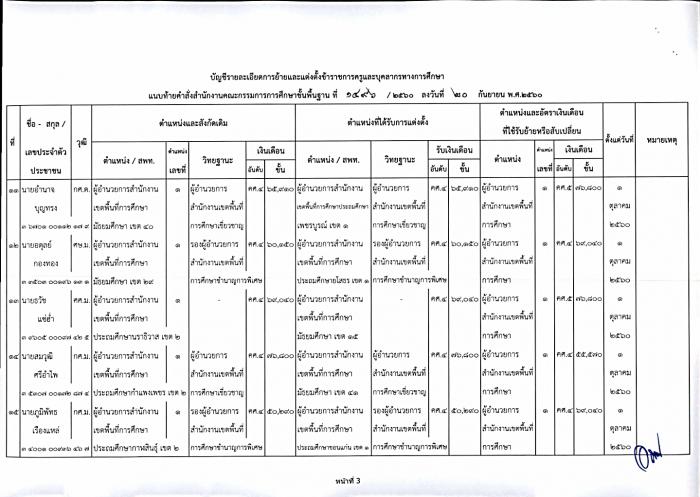 บัญชีรายละเอียดการย้ายและแต่งตั้งข้าราชการครูและบุคลากรทางการศึกษา
แนบท้ายคำสั่งสำนักงานคณะกรรมการการศึกษาขั้นพื้นฐาน ที่ ๑๔๙๖ /๒๕๖๐ ลงวันที่ ๒๐ กันยายน พ.ศ.๒๕๖๐
ที่ ชื่อ - สกุล / เลขประจำตัว ประชาชน วุฒิ ตำแหน่งและสังกัดเดิม ตำแหน่งที่ได้รับการแต่งตั้ง ตำแหน่งและอัตราเงินเดือน ที่ใช้รับย้ายหรือสับเปลี่ยน ตั้งแต่วันที่ หมายเหตุ
ตำแหน่ง / สพท. ตำแหน่ง เลขที่ วิทยฐานะ เงินเดือน อันดับ ขั้น ตำแหน่ง / สพท. วิทยฐานะ รับเงินเดือน อันดับ ขั้น ตำแหน่ง ตำแหน่ง เลขที่ เงินเดือน อันดับ ขั้น
๑๑ นายอำนาจ กศ.ด. ผู้อำนวยการสำนักงาน ๑ ผู้อำนวยการ คศ.๔ ๖๕,๙๑๐ ผู้อำนวยการสำนักงาน ผู้อำนวยการ คศ.๔ ๖๕,๙๑๐ ผู้อำนวยการ ๑ คศ.๕ ๗๖,๘๐๐ ๑
บุญทรง เขตพื้นที่การศึกษา สำนักงานเขตพื้นที่ เขตพื้นที่การศึกษาประถมศึกษา สำนักงานเขตพื้นที่ สำนักงานเขตพื้นที่ ตุลาคม
มัธยมศึกษา เขต ๔๐ การศึกษาเชี่ยวชาญ เพชรบูรณ์ เขต ๑ การศึกษาเชี่ยวชาญ การศึกษา ๒๕๖๐
๑๒ นายอดุลย์ ศษ.ม. ผู้อำนวยการสำนักงาน ๑ รองผู้อำนวยการ คศ.๔ ๖๐,๑๕๐ ผู้อำนวยการสำนักงาน รองผู้อำนวยการ คศ.๔ ๖๐,๑๕๐ ผู้อำนวยการ ๑ คศ.๔ ๖๙,๐๔๐ ๑
กองทอง เขตพื้นที่การศึกษา สำนักงานเขตพื้นที่ เขตพื้นที่การศึกษา สำนักงานเขตพื้นที่ สำนักงานเขตพื้นที่ ตุลาคม
มัธยมศึกษา เขต ๒๙ การศึกษาชำนาญการพิเศษ ประถมศึกษายโสธร เขต ๑ การศึกษาชำนาญการพิเศษ การศึกษา ๒๕๖๐
๑๓ นายธวัช กศ.ม. ผู้อำนวยการสำนักงาน ๑ - คศ.๔ ๖๙,๐๔๐ ผู้อำนวยการสำนักงาน - คศ.๔ ๖๙,๐๔๐ ผู้อำนวยการ ๑ คศ.๕ ๗๖,๘๐๐ ๑
แซ่ฮ่ำ เขตพื้นที่การศึกษา เขตพื้นที่การศึกษา สำนักงานเขตพื้นที่ ตุลาคม
ประถมศึกษานราธิวาส เขต ๒ มัธยมศึกษา เขต ๑๕ การศึกษา ๒๕๖๐
๑๔ นายสมวุฒิ กศ.ม. ผู้อำนวยการสำนักงาน ๑ ผู้อำนวยการ คศ.๔ ๗๖,๘๐๐ ผู้อำนวยการสำนักงาน ผู้อำนวยการ คศ.๔ ๗๖,๘๐๐ ผู้อำนวยการ ๑ คศ.๔ ๕๕,๕๗๐ ๑
ศรีอำไพ เขตพื้นที่การศึกษา สำนักงานเขตพื้นที่ เขตพื้นที่การศึกษา สำนักงานเขตพื้นที่ สำนักงานเขตพื้นที่ ตุลาคม
ประถมศึกษากำแพงเพชร เขต ๒ การศึกษาเชี่ยวชาญ มัธยมศึกษา เขต ๔๑ การศึกษาเชี่ยวชาญ การศึกษา ๒๕๖๐
๑๕ นายภูมิพัทธ กศ.ม. ผู้อำนวยการสำนักงาน ๑ รองผู้อำนวยการ คศ.๔ ๕๐,๒๙๐ ผู้อำนวยการสำนักงาน รองผู้อำนวยการ คศ.๔ ๕๐,๒๙๐ ผู้อำนวยการ ๑ คศ.๔ ๖๙,๐๔๐ ๑
เรืองแหล่ เขตพื้นที่การศึกษา สำนักงานเขตพื้นที่ เขตพื้นที่การศึกษา สำนักงานเขตพื้นที่ สำนักงานเขตพื้นที่ ตุลาคม
ประถมศึกษากาฬสินธุ์ เขต ๒ การศึกษาชำนาญการพิเศษ ประถมศึกษาขอนแก่น เขต ๑ การศึกษาชำนาญการพิเศษ การศึกษา ๒๕๖๐
หน้าที่ 3